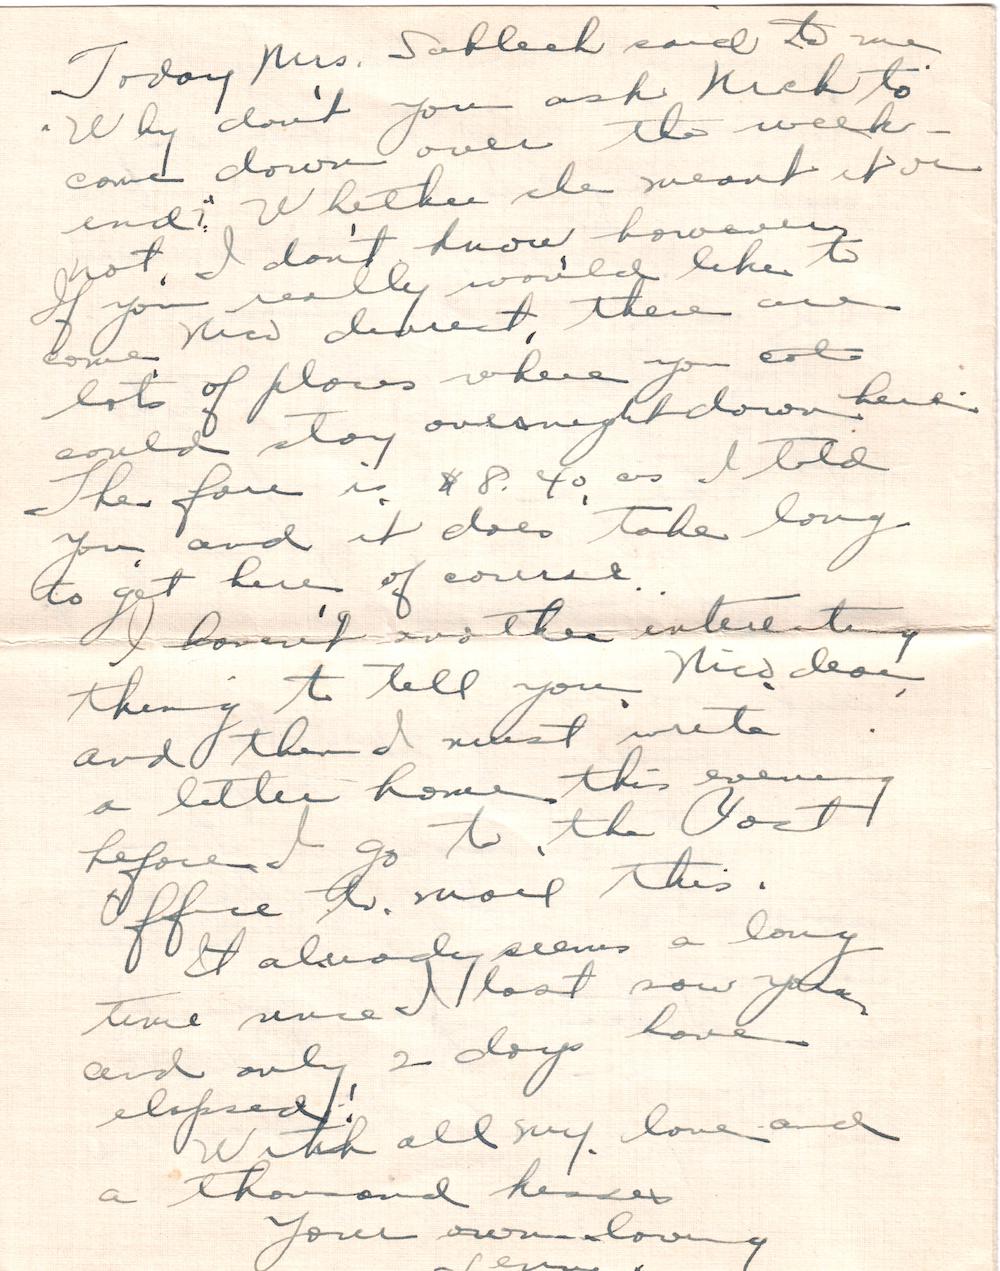 Today Mrs. said to me
"Why don't you ask Nick to
come down over the week-
end?" Whether she meant it or
not, I don't know however,
If you really would like to
come, Nico dearest, there are
lots of places where you
could stay overnight down here.
The fare is $8.40, as I told
you and it does take long
to get here of course.
I haven't another interesting
thing to tell you, Nico, dear,
and then I must write
a letter home this evening
before I go to the Post
Office to mail this.
It already seems a long
time since I last saw you,
and only 2 days have
elapsed!
With all my love and
a thousand kisses
Your own loving